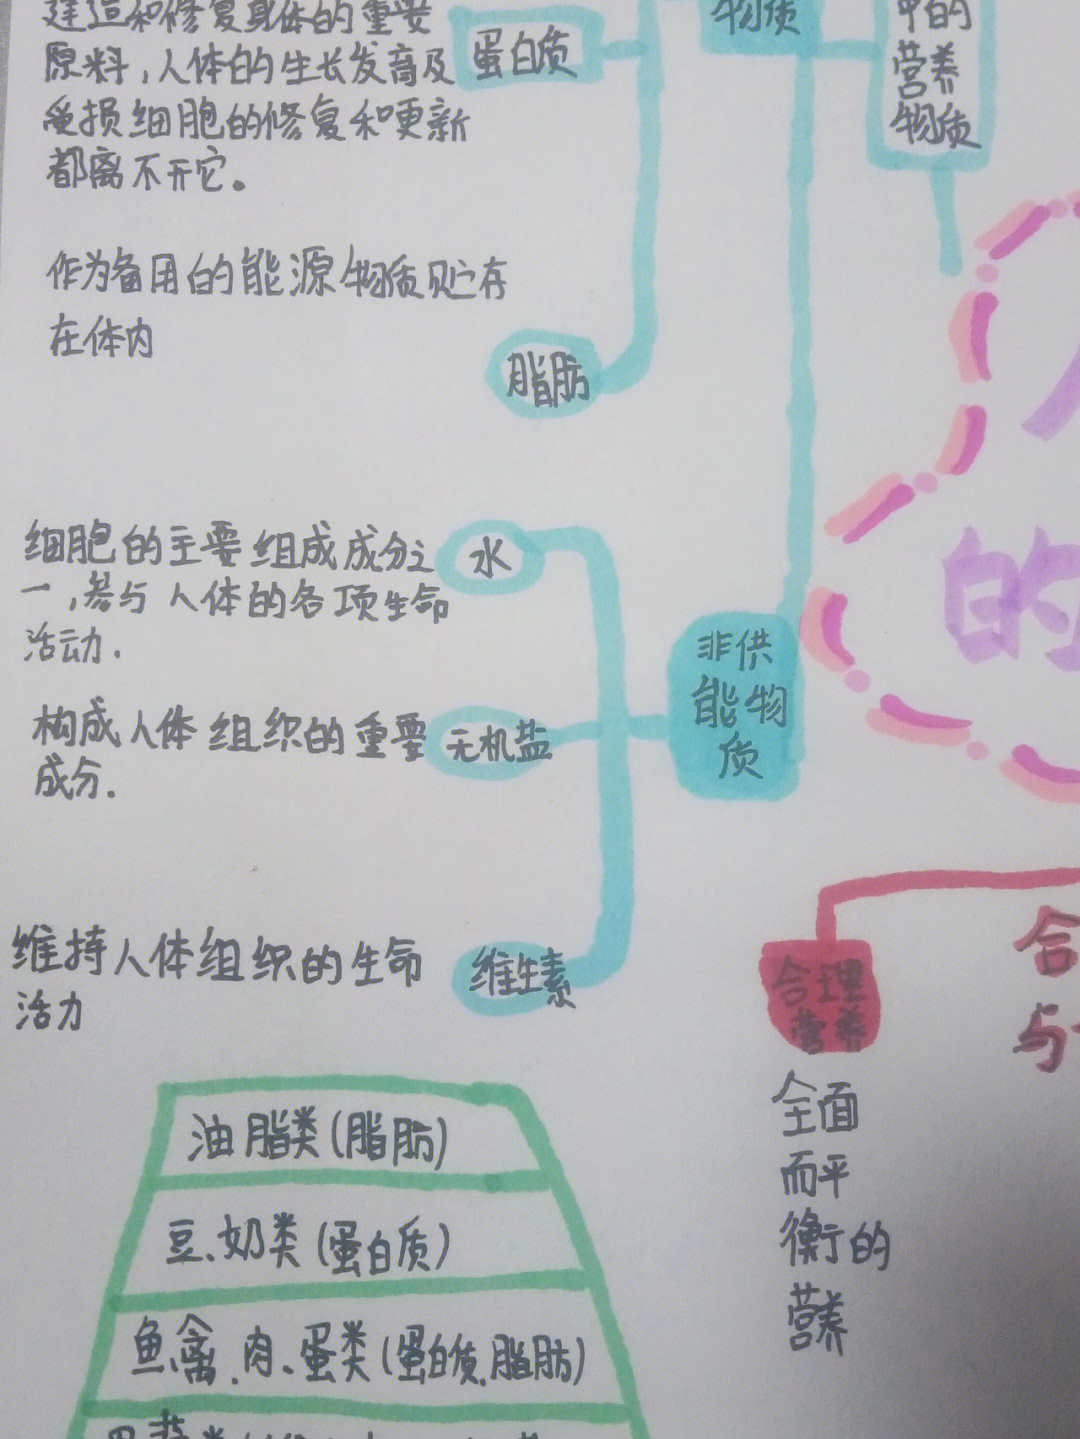 建造和修复身体的重要
原料,人体的生长发育及
受损细胞的修复和更新
都离不开它。
蛋白质
物质
中的
营养
物质
作为备用的能源物质贮存
在体内
脂肪
细胞的主要组成成分之
一,参与人体的各项生命
活动.
水
非供
能物
质
构成人体组织的重要
成分.
无机盐
维持人体组织的生命
活力
维生素
的
合理
营养
合
与
全面
而平
衡的
营养
油脂类(脂肪)
豆、奶类(蛋白质)
鱼、禽、肉、蛋类(蛋白质、脂肪)